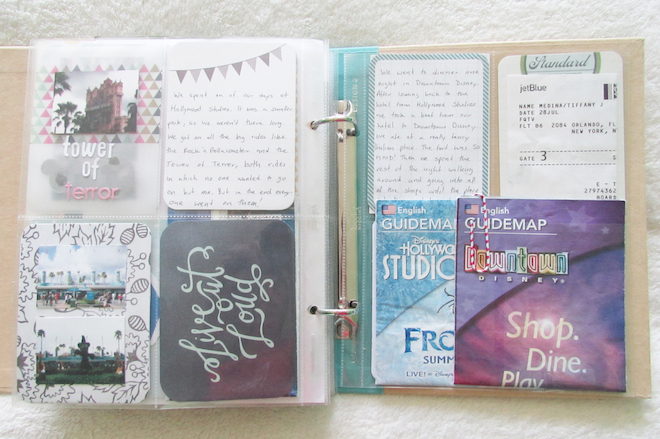 tower
of
Terror
We spent one of our days at
Hollywood Studios. It was a smaller
park, so we weren't there long.
We got on all the big rides like
the Rock n Rollercoaster and the
Tower of Terror, both rides
in which no one wanted to go
on but me. But in the end every-
one went on them!
Live it
Out
Loud
We went to dinner one
night in Downtown Disney.
After coming back to the
hotel from Hollywood Studios
we took a boat from our
hotel to Downtown Disney.
we ate at a really fancy
Italian place. The food was SO
GOOD! Then we spent the
rest of the night walking
around and going into all
of the shops until the place
Standard
jetBlue
NAME MEDINA/TIFFANY J
DATE 28JUL
FQTV
FLT B6 2084 ORLANDO, FL
NEW YORK, N
GATE 3
E - T
27974362
BOARD
English
GUIDEMAP
Disney's
HOLLYW
STUDIO
FRO
SUMM
LIVE! at Disney
English
GUIDEMAP
DOWNTOWN
DISNEY®
Shop.
Dine.
Play.